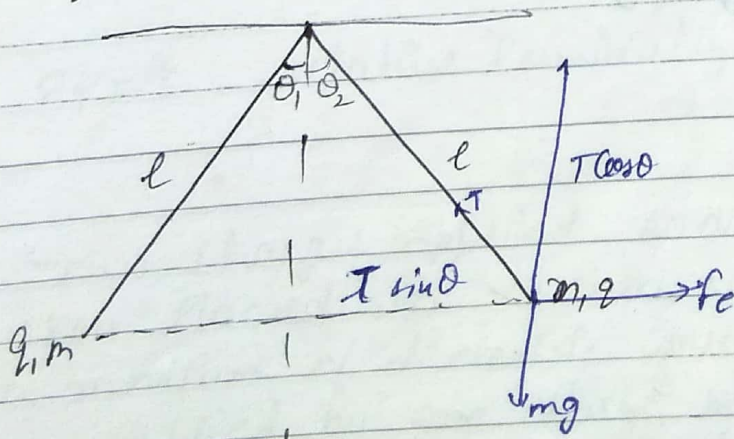 θ₁ θ₂
l l
T Cosθ
T
T sinθ
q, m m, q Fe
mg